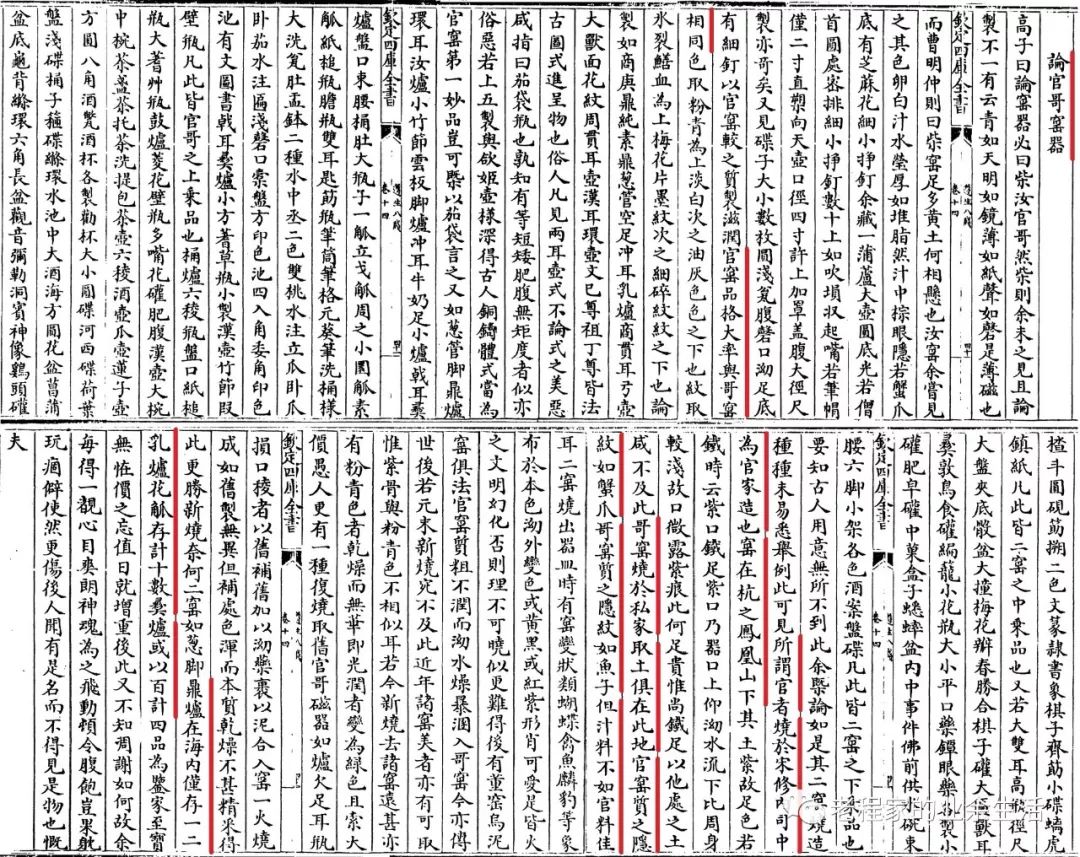 論官哥窰器
高子曰論窰器必曰柴汝官哥然柴則余未之見且論
製不一有云青如天明如鏡薄如紙聲如磬是薄磁也
欽定四庫全書 遵生八牋 卷十四
而曹明仲則曰柴窰足多黃土何相懸也汝窰余嘗見
之其色卵白汁水瑩厚如堆脂然汁中棕眼隱若蟹爪
底有芝麻花細小掙釘余藏一蒲蘆大壺圓底光若僧
首圓處密排細小掙釘數十上如吹塤収起嘴若筆帽
僅二寸直槊向天壺口徑四寸許上加罩蓋腹大徑尺
製亦竒矣又見碟子大小數枚圓淺甕腹磬口泑足底
有細釘以官窰較之質製滋潤官窰品格大率與哥窰
相同色取粉青為上淡白次之油灰色色之下也紋取
氷裂鱔血為上梅花片墨紋次之細碎紋紋之下也論
製如商庚鼎純素鼎葱管空足冲耳乳爐商貫耳弓壺
大獸面花紋周貫耳壺漢耳環壺文已尊祖丁尊皆法
古圖式進呈物也俗人凡見兩耳壺式不論式之美惡
咸指曰茄袋瓶也孰知有等短矮肥腹無矩度者似亦
俗惡若上五製與欲姬壺樣深得古人銅鑄體式當為
官窰第一妙品豈可槩以茄袋言之又如葱管脚鼎爐
環耳汝爐小竹節雲板脚爐冲耳牛奶足小爐㦸耳彝
欽定四庫全書 遵生八牋 卷十四
爐盤口束腰桶肚大瓶子一觚立戈觚周之小圜觚素
觚紙槌瓶膽瓶雙耳匙筯瓶筆筒筆格元葵筆洗桶樣
大洗甕肚盂鉢二種水中丞二色雙桃水注立瓜卧瓜
卧茄水注匾淺磬口槖盤方印色池四入角委角印色
池有文圖書㦸耳彝爐小方蓍草瓶小製漢壺竹節叚
壁瓶凡此皆官哥之上乗品也桶爐六稜瓶盤口紙槌
瓶大蓍艸瓶鼓爐菱花壁瓶多嘴花礶肥腹漢壺大椀
中椀茶盞茶托茶洗提包茶壺六稜酒壺瓜壺蓮子壺
方圓八角酒甓酒杯各製勸杯大小圓碟河西碟荷葉
盤淺碟桶子箍碟縧環水池中大酒海方圓花盆菖蒲
盆底龜背縧環六角長盆觀音彌勒洞賓神像鷄頭礶
揸斗圓硯筯搠二色文篆隸書象棋子齊筯小碟螭虎
鎮紙凡此皆二窰之中乗品也又若大雙耳高瓶徑尺
大盤夾底骰盆大撞梅花瓣春勝合棋子礶大匾獸耳
彝敦鳥食礶編籠小花瓶大小平口藥鐔眼藥各製小
礶肥皂礶中菓盒子蟋蟀盆内中事件佛前供碗束
欽定四庫全書 卷十四
腰六脚小架各色酒案盤碟凡此皆二窰之下乗品也
要知古人用意無所不到此余槩論如是其二窰燒造
種種未易悉舉例此可見所謂官者燒於宋修内司中
為官家造也窰在杭之鳳凰山下其土紫故足色若
鐵時云紫口鐵足紫口乃器口上仰泑水流下比周身
較淺故口微露紫痕此何足貴惟尚鐵足以他處之土
咸不及此哥窰燒於私家取土俱在此地官窰質之隱
紋如蟹爪哥窰質之隱紋如魚子但汁料不如官料佳
耳二窰燒出器皿時有窰變狀類蝴蝶禽魚麟豹等象
布於本色泑外變色或黃黑或紅紫形肖可愛是皆火
之文明幻化否則理不可曉似更難得後有董窰烏泥
窰俱法官窰質粗不潤而泑水燥暴溷入哥窰今亦傳
世後若元末新燒宛不及此近年諸窰美者亦有可取
惟紫骨與粉青色不相似耳若今新燒去諸窰遠甚亦
有粉青色者乾燥而無華即光潤者變為綠色且索大
價愚人更有一種復燒取舊官哥磁器如爐欠足耳瓶
欽定四庫全書 遵生八牋 卷十四
損口稜者以舊補舊加以泑藥裹以泥合入窰一火燒
成如舊製無異但補處色渾而本質乾燥不甚精采得
此更勝新燒奈何二窰如葱脚鼎爐在海内僅存一二
乳爐花觚存計十數彝爐或以百計四品為鑒家至寶
無怪價之忘值日就增重後此又不知凋謝如何故余
每得一覩心目爽朗神魂為之飛動頓令腹飽豈果躭
玩痼僻使然更傷後人聞有是名而不得見是物也慨
夫
老程家的业余生活